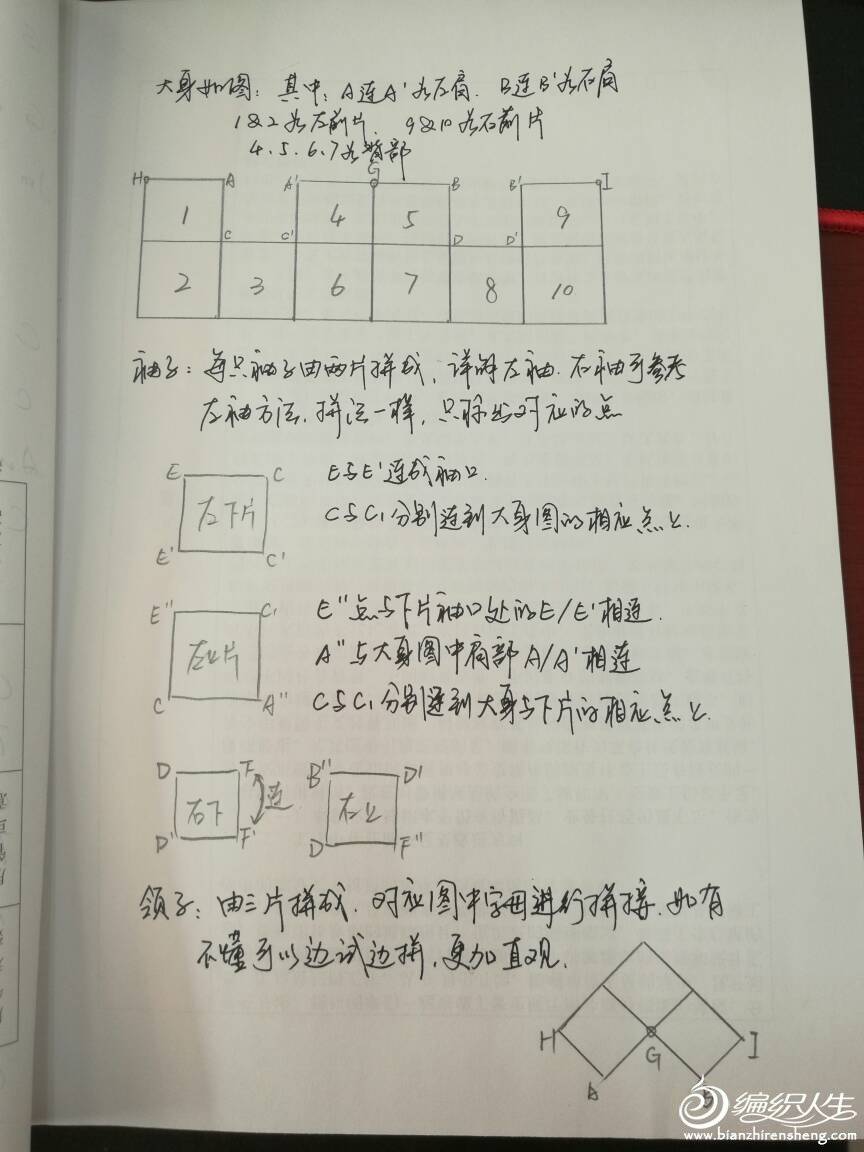 大身如图：其中：A连A'为左肩．B连B'为右肩
1&2为左前片．9&10为右前片
4．5．6．7为背部
H A A' G B B' I
1 4 5 9
C C' D D'
2 3 6 7 8 10
袖子：每只袖子由两片拼成，详解左袖．右袖可参考
左袖方法．拼法一样，只标出对应的点
E C
左下片
E' C'
E与E'连成袖口．
C与C'分别连到大身图的相应点上．
E'' C'
左上片
C A''
E''点与下片袖口处的E/E'相连．
A''与大身图中肩部A/A'相连
C与C'分别连到大身与下片的相应点上．
D F
右下
D' F'
连
B'' D'
右上
D F''
领子：由三片拼成．对应图中字母进行拼接．如有
不懂可以边试边拼，更加直观．
H G I
A B
编织人生
www.bianzhirensheng.com